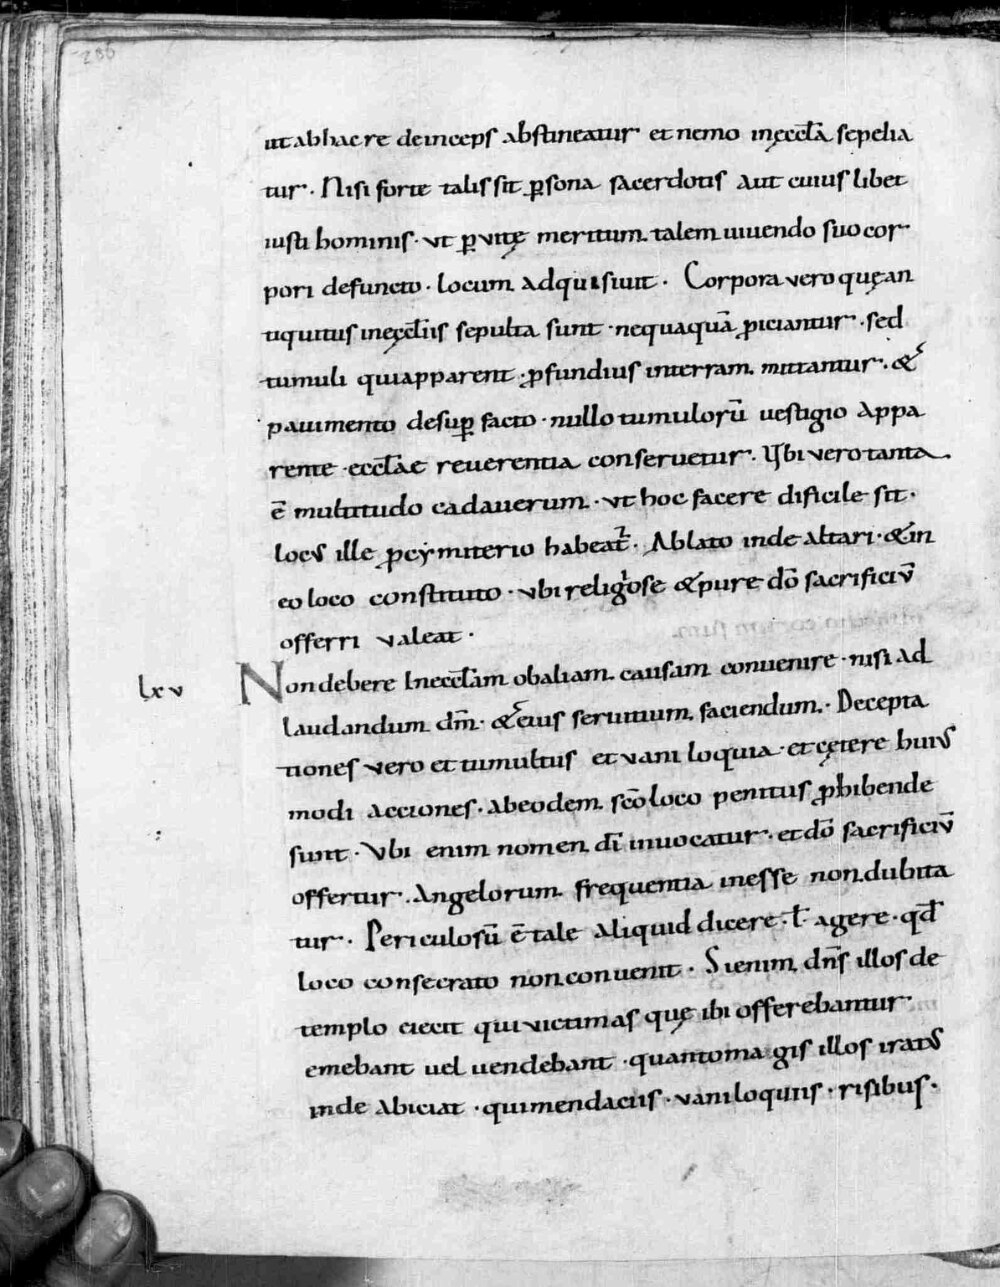 286
ut ab hac re deinceps abstineatur et nemo in ęccła sepelia
tur. Nisi forte talis sit ꝑsona sacerdotis aut cuius libet
iusti hominis. ut ꝑ uitę meritum talem uiuendo suo cor
pori defuncto. locum adquisiuit. Corpora uero quę an
tiquitus in ęccłiis sepulta sunt. nequaquā ꝓiciantur. sed
tumuli qui apparent. ꝓfundius in terram mittantur. &
pauimento desuꝑ facto. nullo tumulorū uestigio appa
rente. eccłae reuerentia conseruetur. Ubi uero tanta
ē multitudo cadauerum. ut hoc facere dificile sit.
locus ille ꝓ cymiterio habeat᷑. Ablato inde altari. & in
eo loco constituto. ubi religiose & pure dō sacrificiū
offerri ualeat.
lxv Non debere In eccłam ob aliam causam conuenire. nisi ad
laudandum dm̄. & eius seruitium faciendum. Decepta
tiones uero et tumultus et uani loquia. et cętere huius
modi acciones. ab eodem sc̄o loco penitus ꝓhibende
sunt. Ubi enim nomen dī inuocatur. et dō sacrificiū
offertur. Angelorum frequentia inesse non dubita
tur. Periculosū ē tale aliquid dicere. ł agere. qđ
loco consecrato non conuenit. Si enim dn̄s illos de
templo eiecit qui uictimas quę ibi offerebantur.
emebant uel uendebant. quanto magis illos iratus
inde abiciat. qui mendaciis. uaniloquiis. risibus.